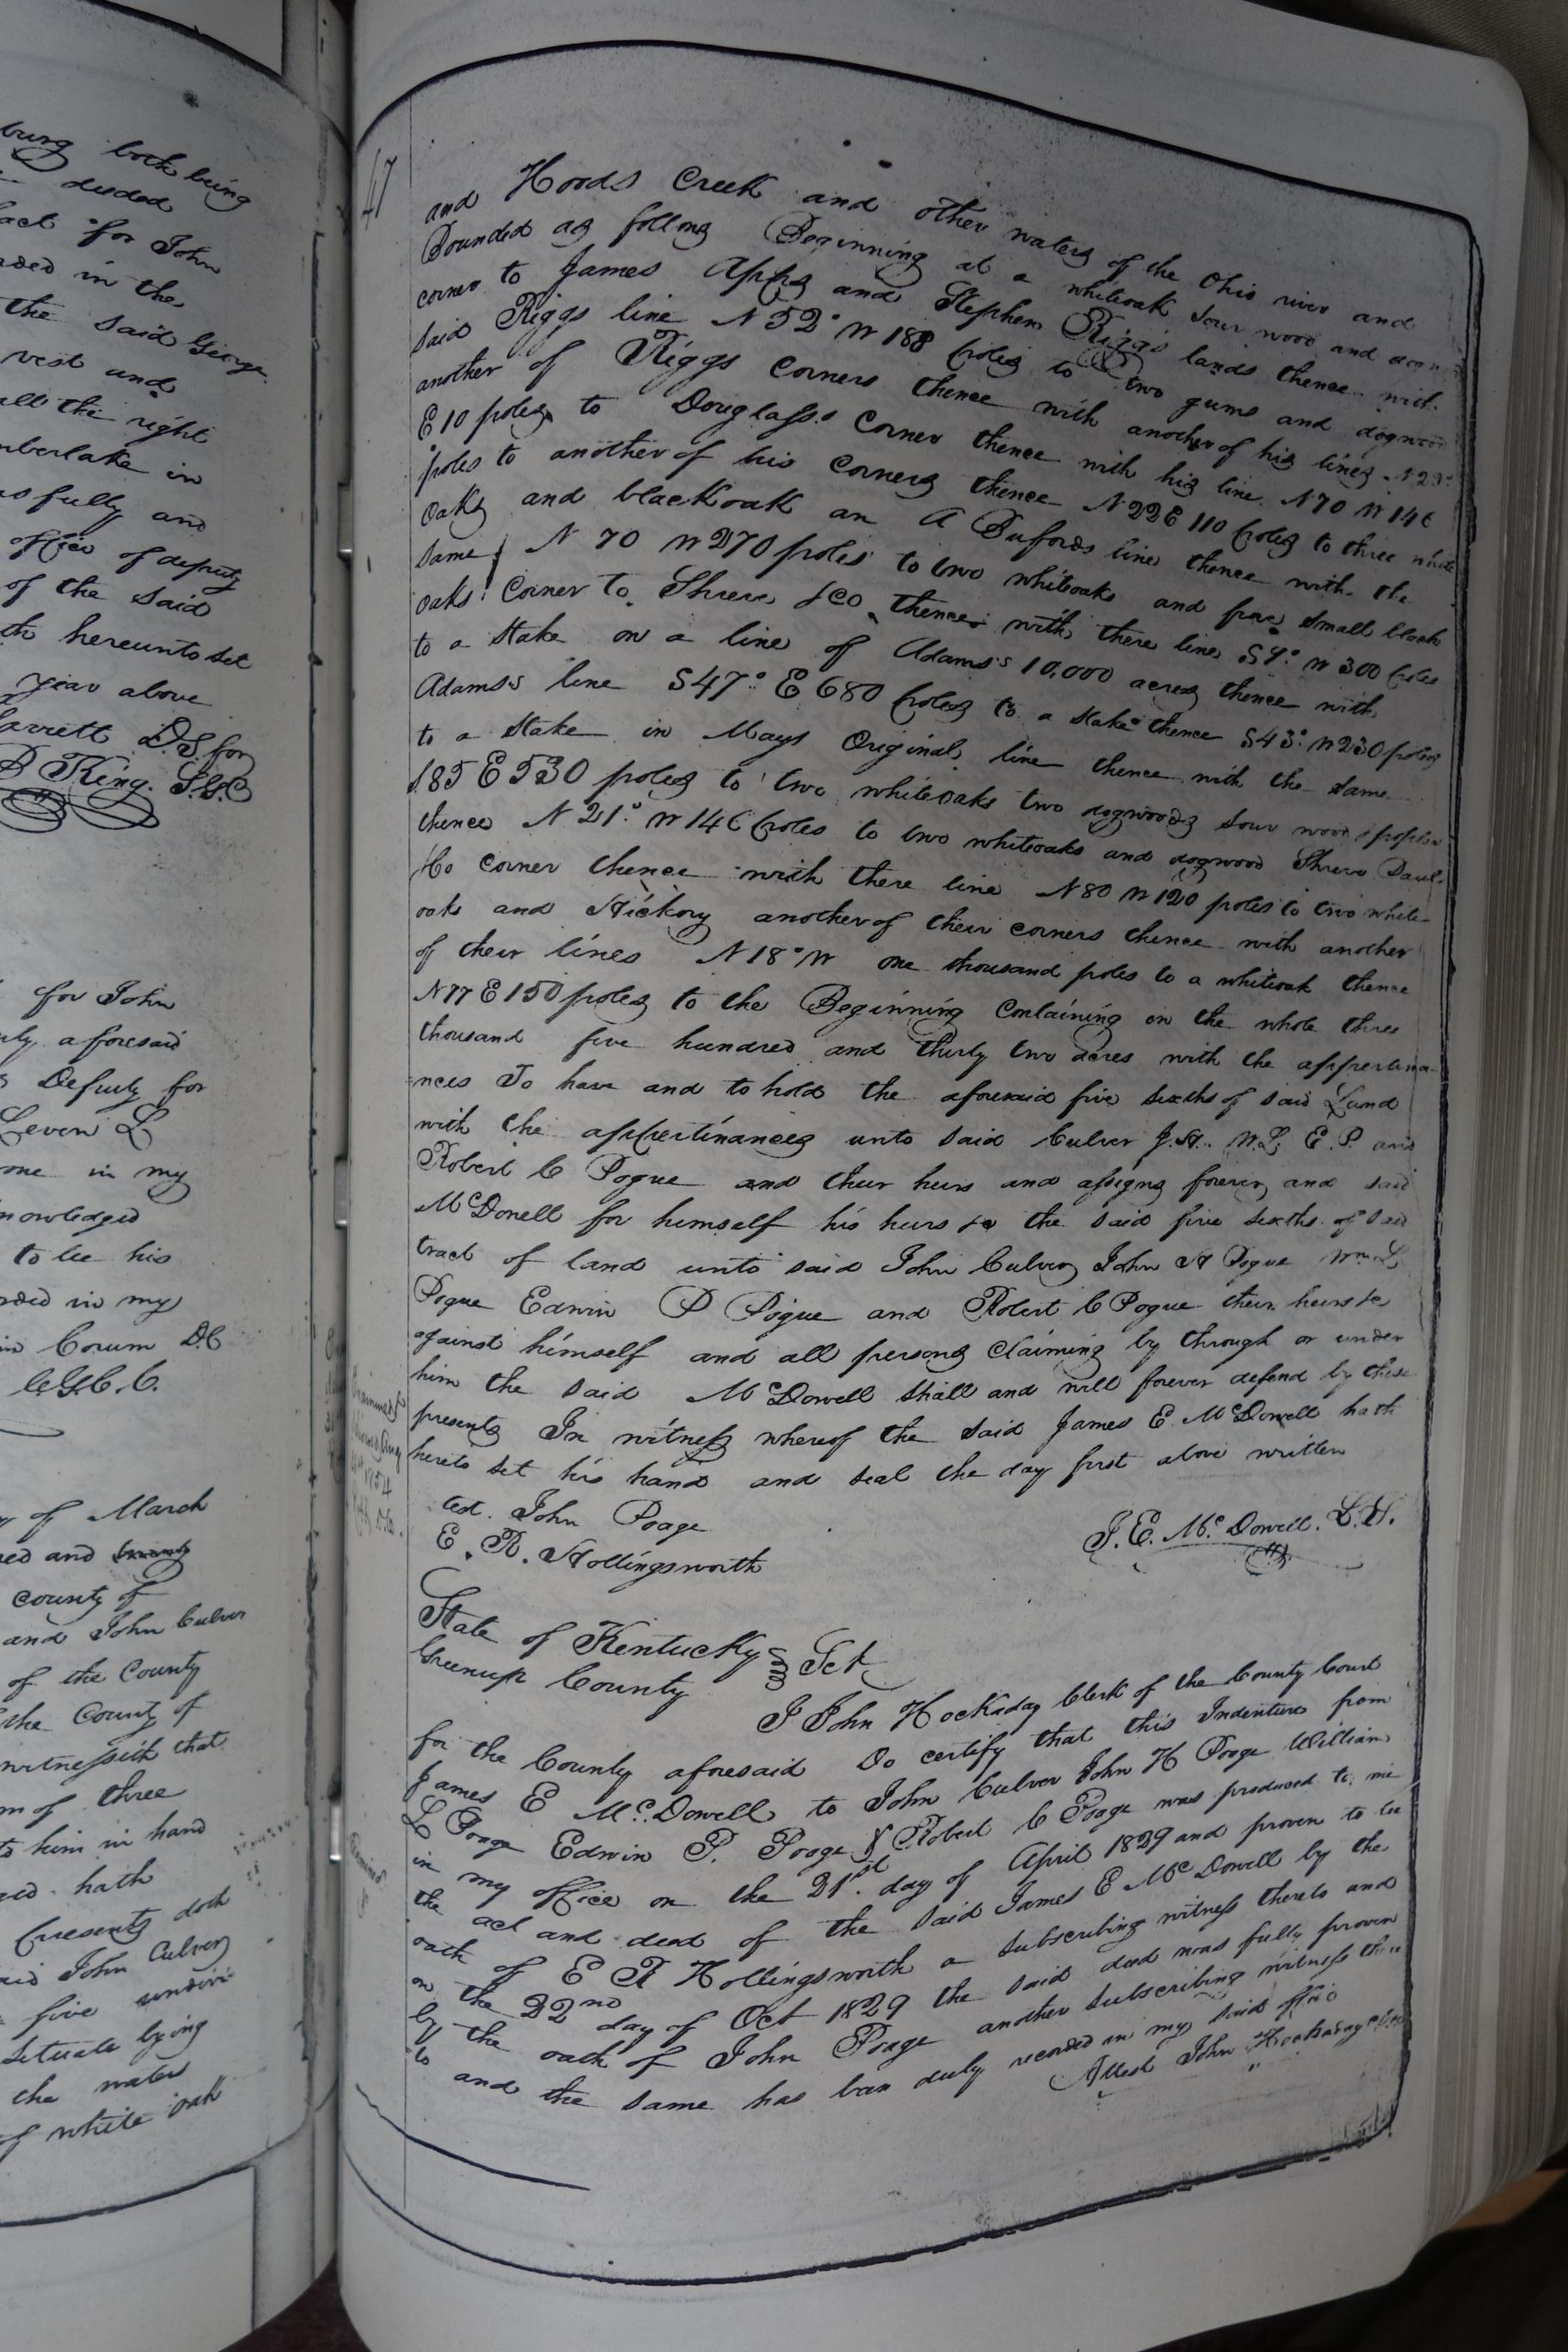 burg look being
deeded
fact for John
in the
the said George
vest and
all the right
in
as fully and
office of deputy
of the said
hereunto set
year above
D.S. for
D King. S.G.C
for John
aforesaid
Deputy for
Leven L
in my
to be his
in my
Corum D.C
C.G.C.C.
of March
and
County of
and John Culver
of the County
the County of
witnesseth that
of three
to him in hand
hath
presents doth
said John Culver
five
situate lying
the waters
of white oak
47
and Hoods Creek and other waters of the Ohio river and
Bounded as follows Beginning at a whiteoak sour wood and
corner to James and Stephen Riggs lands thence with
said Riggs line N 52° W 188 poles to two gums and dogwood
another of Riggs corners thence with another of his lines
E 10 poles to Douglass corner thence with his line N 70 W 146
poles to another of his corners thence N 22 E 110 poles to three white
oaks and blackoak on A Bufords line thence with the
same N 70 W 270 poles to two whiteoaks and five small black
oaks corner to Shreve &co thence with there line S 9° W 300 poles
to a stake on a line of Adams's 10,000 acres thence with
Adams's line S 47° E 680 poles to a stake thence S 43° W 230 poles
to a stake in Mays Original line thence with the same
S. 85 E 530 poles to two whiteoaks two dogwoods sour wood &
thence N 21° W 146 poles to two whiteoaks and dogwood Shreve
&Co corner thence with there line N 80 W 120 poles to two white
oaks and Hickory another of their corners thence with another
of their lines N 18° W one thousand poles to a whiteoak thence
N 77 E 150 poles to the Beginning Containing in the whole three
thousand five hundred and thirty two acres with the appertina-
=nces To have and to hold the aforesaid five sixths of said Land
with the appertinances unto said Culver J.H. W.L. E.P. and
Robert C Pogue and their heirs and assigns forever and said
McDonell for himself his heirs &c the said five sixths of said
tract of land unto said John Culver John H Pogue Wm L
Pogue Edwin P Pogue and Robert C Pogue their heirs &c
against himself and all persons claiming by through or under
him the said McDowell shall and will forever defend by these
presents In witness whereof the said James E. McDowell hath
hereto set his hand and seal the day first above written
test. John Poage
E. R. Hollingsworth
J. E. Mc Dowell. L.S.
State of Kentucky
Greenup County Sct
I John Hockaday Clerk of the County Court
for the County aforesaid Do certify that this Indenture from
James E McDowell to John Culver John H Poage William
L Poage Edwin P. Poage & Robert C Poage was produced to me
in my office on the 21st. day of April 1829 and proven to be
the act and deed of the said James E McDowell by the
oath of E R Hollingsworth a subscribing witness thereto and
on the 22nd day of Oct 1829 the said deed was fully proven
by the oath of John Poage another subscribing witness
to and the same has been duly recorded in my said office
Attest John Hockaday